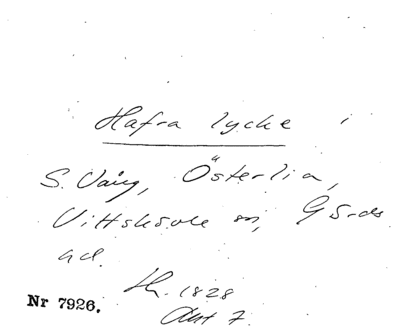 Hafra lycke i
S. Vång, Österlia,
Vittskövle sn, Gärds
hd.
Sk. 1828
Akt 7.
Nr 7926.